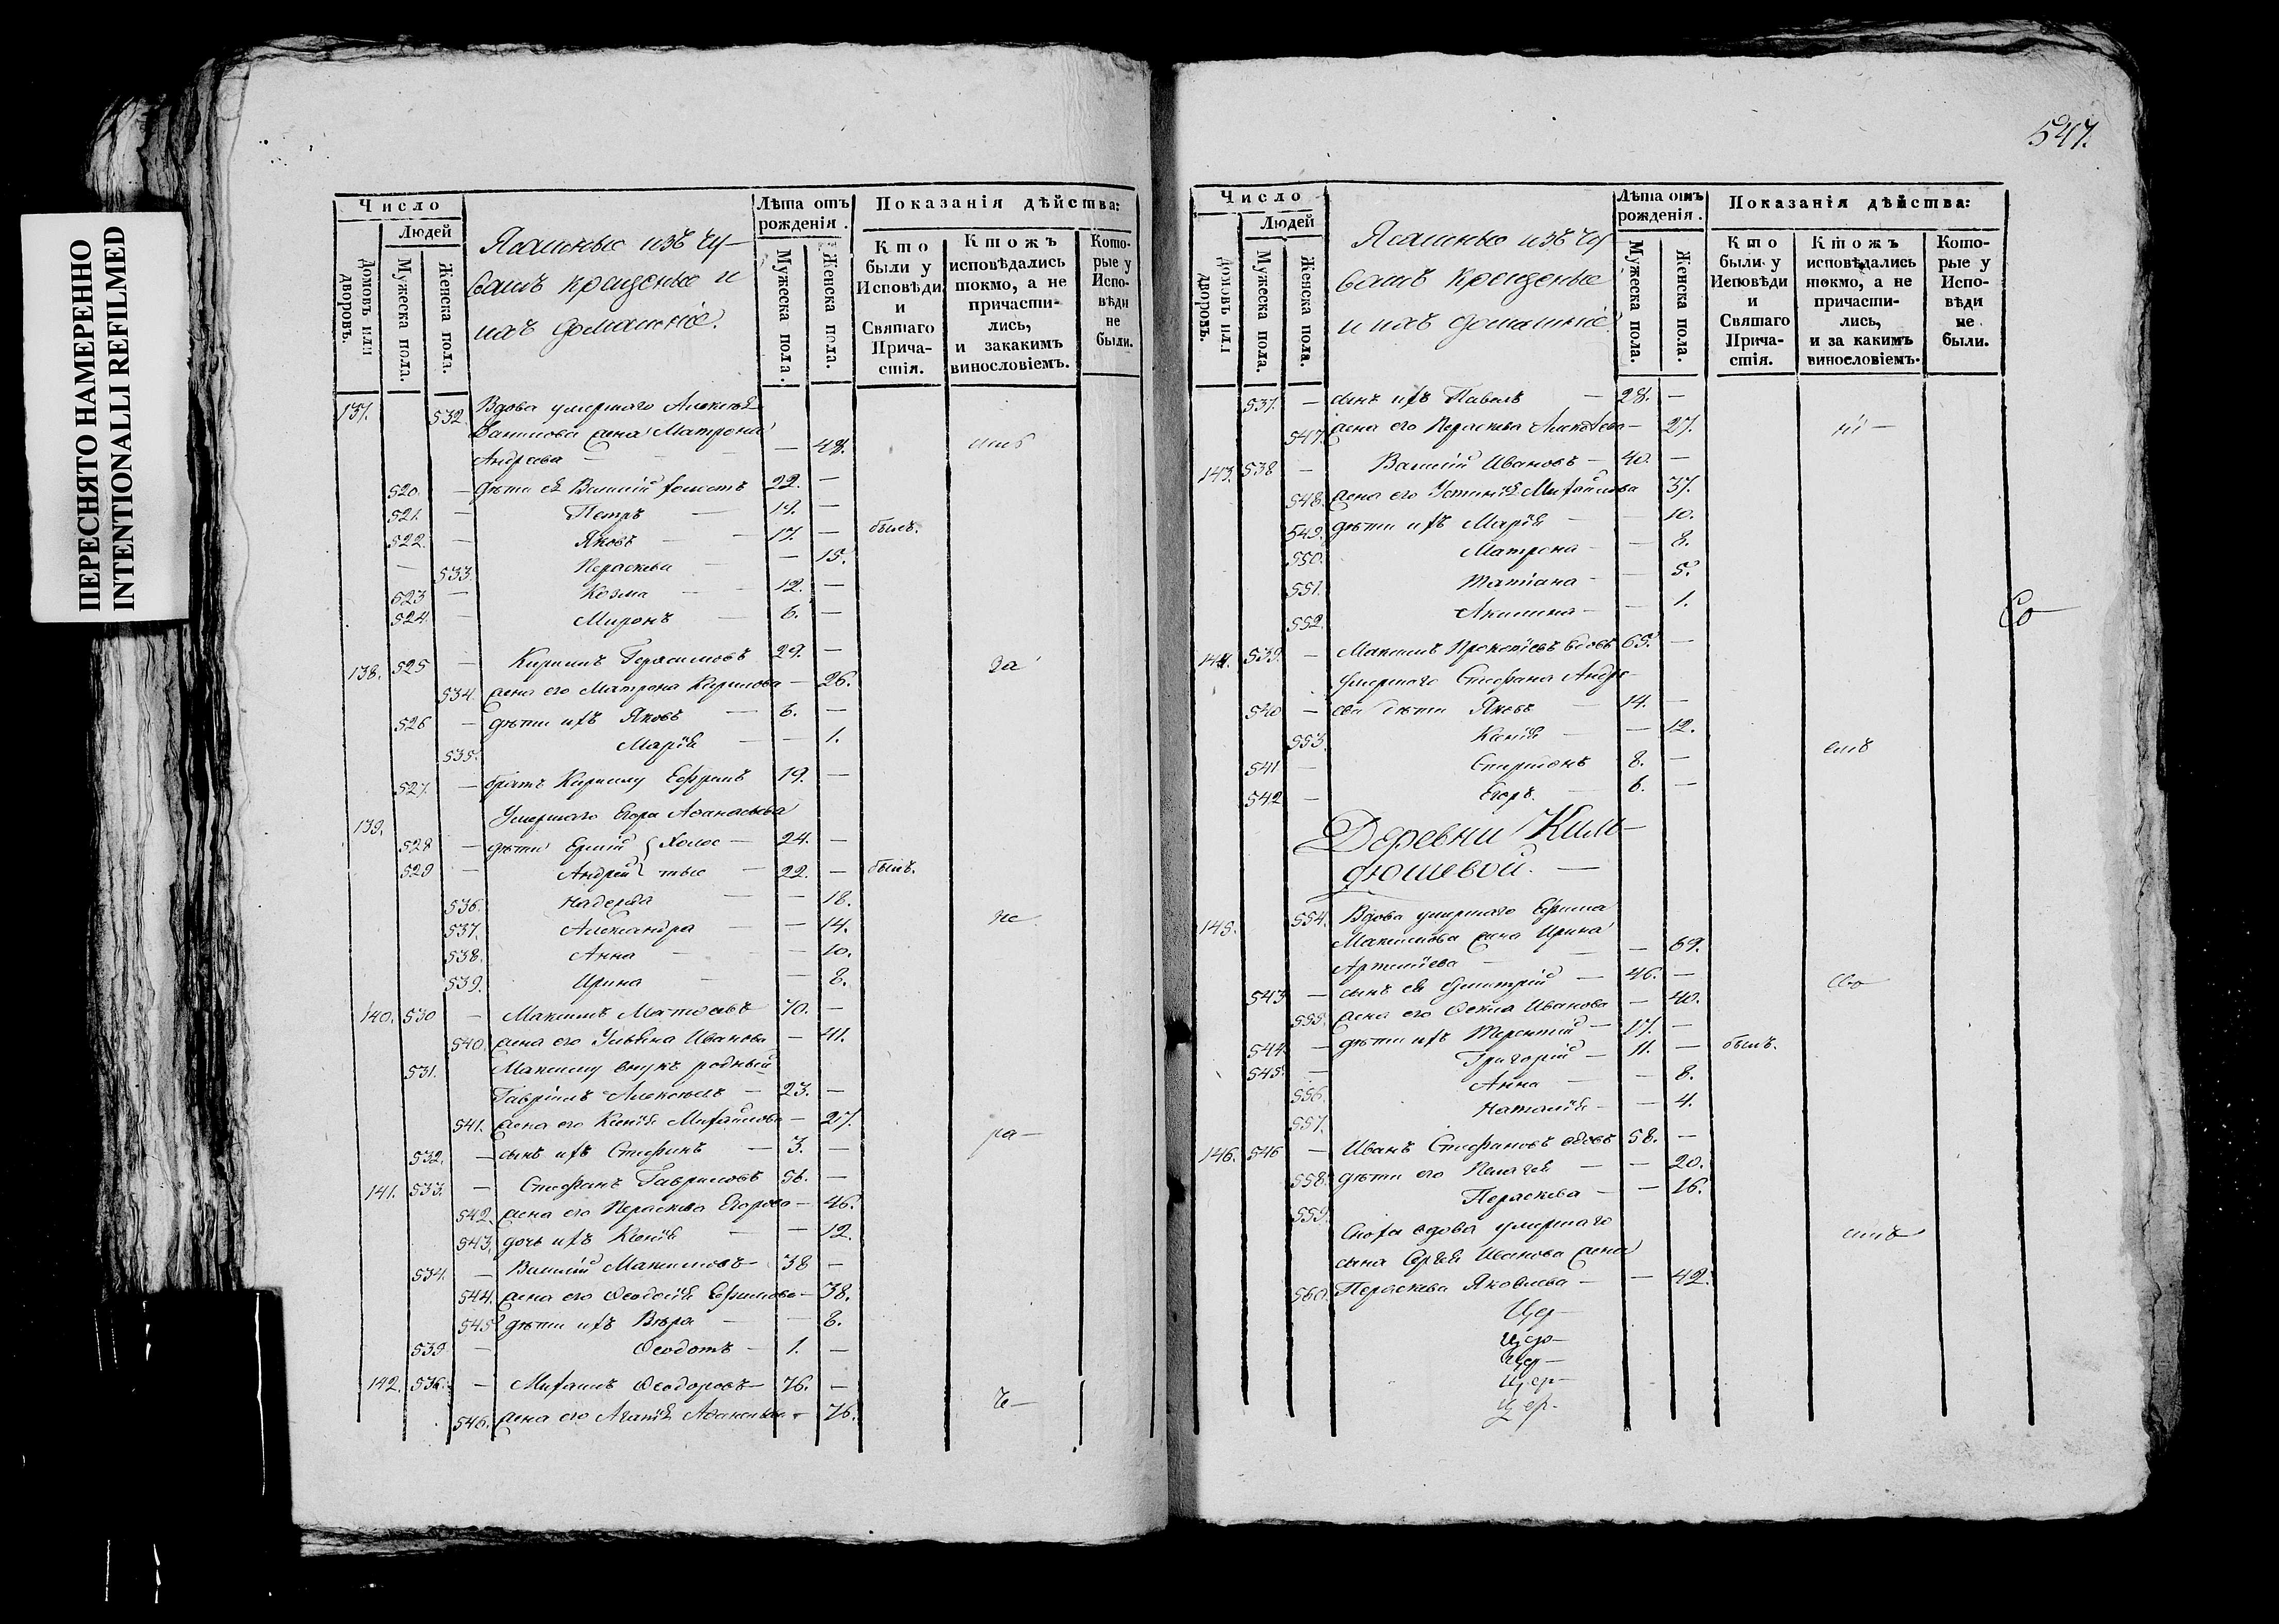 ПЕРЕСНЯТО НАМЕРЕННО
INTENTIONALLI REFILMED
Число
Людей
домовъ или дворовъ.
Мужеска пола.
Женска пола.
Ясашные изъ чу-
вашъ крещеные и
ихъ домашніе.
Лѣта отъ рожденія.
Мужеска пола.
Женска пола.
Показанія дѣйства:
Кто были у Исповѣди и Святаго Прича-стія.
Ктожъ исповѣдались токмо, а не причасти-лись, и закакимъ винословіемъ.
Кото-рые у Испо-вѣди не были.
137. 532. Вдова умершаго Алексѣя
Данилова жена Матрона
Андреева — — 48.
520. — дѣти ея Василій холостъ 22. —
521. — Петръ — 19. —
522. — Яковъ — 17. — былъ.
— 533. Параскева — 15.
523 — Козма — 12. —
524. — Миронъ 6. —
138. 525 — Кирилъ Герасимовъ 29. — за
534. жена его Матрона Кирилова — 26.
526 — дѣти ихъ Яковъ — 6. —
535. Марія — — 1.
527. — братъ Кирилу Ефримъ 19. —
139. Умершаго Егора Аѳанасьева
528 — дѣти Ермій } Холос — 24. —
529 — Андрей } тые — 22. — былъ.
536. Надежда — — 18.
537. Александра — — 14. не
538. Анна — — 10.
539. Ирина — — 8.
140. 530 — Максимъ Матвѣевъ 70. —
540. жена его Ульяна Иванова — 41.
531. Максиму внукъ родный
Гавріилъ Алексѣевъ — 23. —
541. жена его Ксенія Михайлова — 27. ра —
532. — сынъ ихъ Стефанъ — 3. —
141. 533. — Стефанъ Гавриловъ 56. —
542. жена его Параскева Егорова — 46.
543. дочь ихъ Ксенія — — 12.
534. — Василій Максимовъ — 38 —
544. жена его Ѳеодосія Ефимова — 38.
545. дѣти ихъ Вѣра — — 8.
539 — Ѳеодотъ — 1. —
142. 536. — Михаилъ Ѳеодоровъ — 76. —
546. жена его Агафія Аѳанасьева — 76. че —
547.
Число
Людей
домовъ илі дворовъ.
Мужеска пола.
Женска пола.
Ясашные изъ чу-
вашъ крещеные
и ихъ домашніе.
Лѣта отъ рожденія.
Мужеска пола.
Женска пола.
Показанія дѣйства:
Кто были у Исповѣди и Святаго Прича-стія.
Ктожъ исповѣдались токмо, а не причасти-лись, и за какимъ винословіемъ.
Кото-рые у Испо-вѣди не были.
537. — сынъ ихъ Павелъ — 28. —
547. жена его Параскева Алексѣева — 27. ні —
143. 538 — Василій Ивановъ — 40. —
548. жена его Устинія Михайлова 37.
549. дѣти ихъ Марія — 10.
550. Матрона — — 8.
551. Татіана — — 5.
552. Акилина — — 1.
Со —
144. 539. — Максимъ Прокопіевъ вдовъ 65. —
умершаго Стефана Андре-
540 — ева дѣти Яковъ — 14. —
553. Ксенія — — 12.
541 — Спиридонъ 8. — емъ
542 — Егоръ. — 6. —
Деревни Киль-
дюшевой. —
145. 554. Вдова умершаго Ефима
Максимова жена Ирина
Артемьева — — 69.
543 — сынъ ея Димитрій — 46. — сво
555. жена его Ѳекла Иванова — 40.
544 — дѣти ихъ Терентій — 17. — былъ.
545. — Григорій — 11. —
556. Анна — — 8.
557. Наталія — — 4.
146. 546 — Иванъ Стефановъ вдовъ 58. —
558. дѣти его Пелагея — — 20.
559. Параскева — — 16.
Сноха вдова умершаго
сына Сергѣя Иванова жена
560. Параскева Яковлева — — 42.
Цер —
Цер —
Цер —
Цер —
Цер —